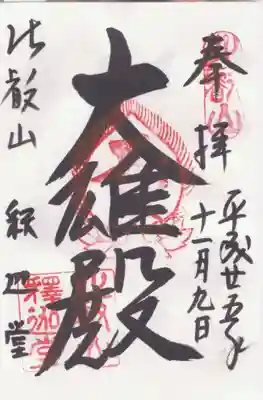 奉拝
平成廿五年
十一月九日
大雄殿
比叡山 釈迦堂
釋迦堂